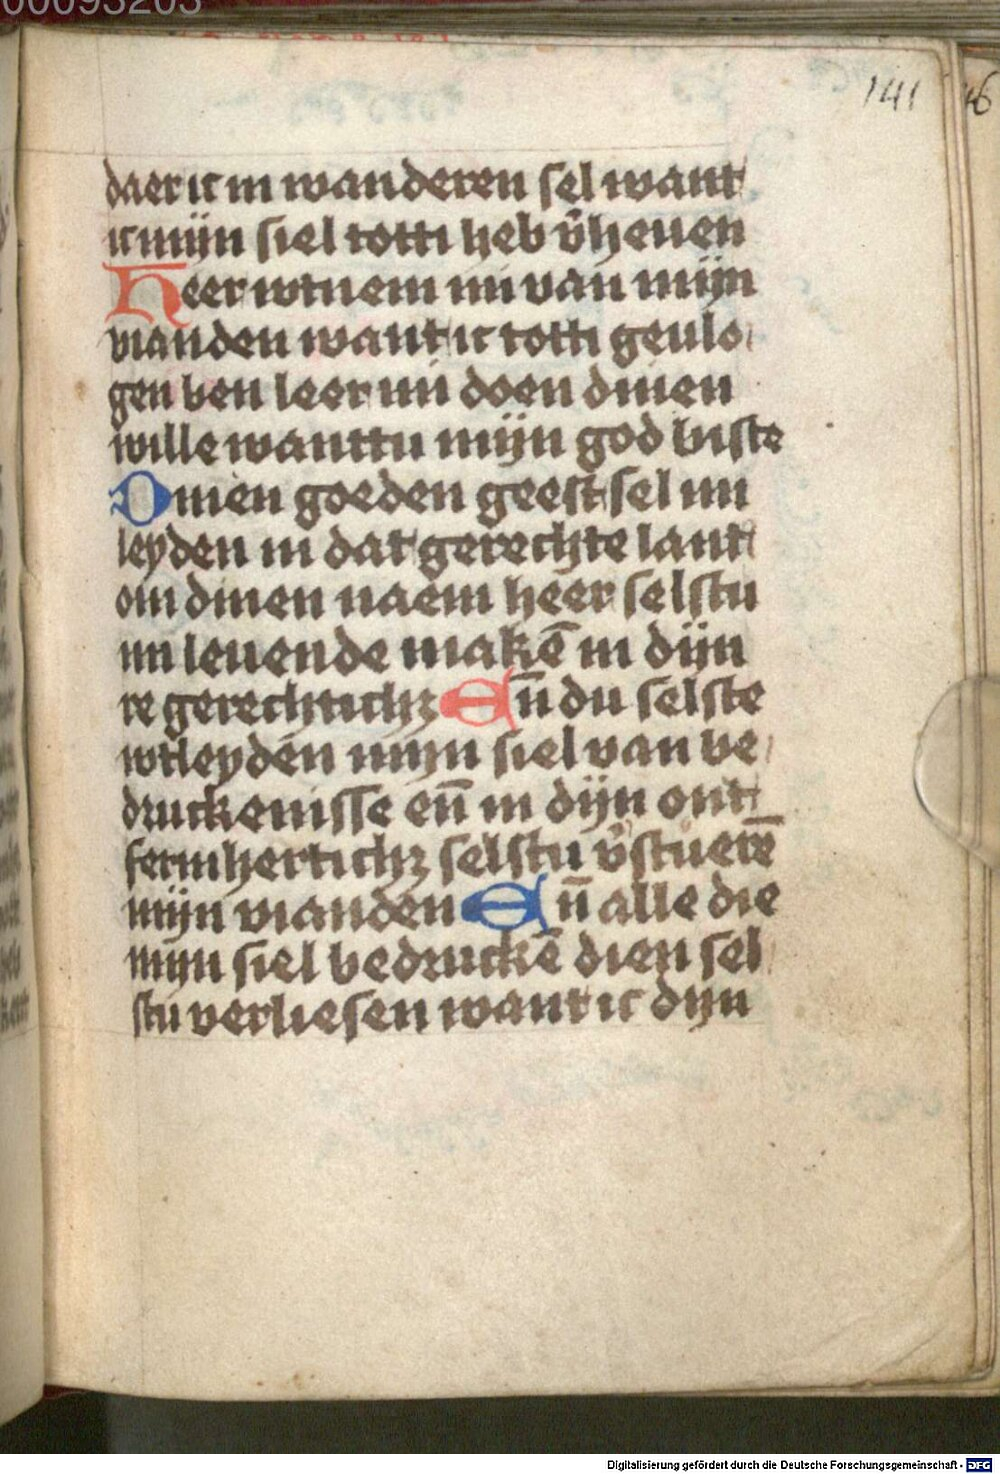 00093203
141
daer ic in wanderen sel want
ic mijn siel totti heb v̾heuen
Heer wtnem mi van mijn
vianden want ic totti geulo
gen ben leer mi doen dinen
wille wanttu mijn god biste
Dinen goeden geest sel mi
leyden in dat gerechte lant
om dinen naem heer selstu
mi leuende makē in dijn
re gerechtichꝫ Eñ du selste
wtleyden mijn siel van be
druckenisse eñ in dijn ont
fermhertichꝫ selstu v̾stuerē
mijn vianden Eñ alle die
mijn siel bedruckē dien sel
stu verliesen want ic dijn
Digitalisierung gefördert durch die Deutsche Forschungsgemeinschaft - DFG